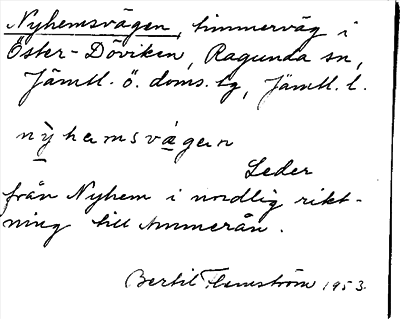 Nyhemsvägen, timmerväg i
Öster-Döviken, Ragunda sn,
Jämtl. ö. doms. tg, Jämtl. l.
nỳhemsvägen
Leder
från Nyhem i nordlig rikt-
ning till Ammerån.
Bertil Flemström 1953.